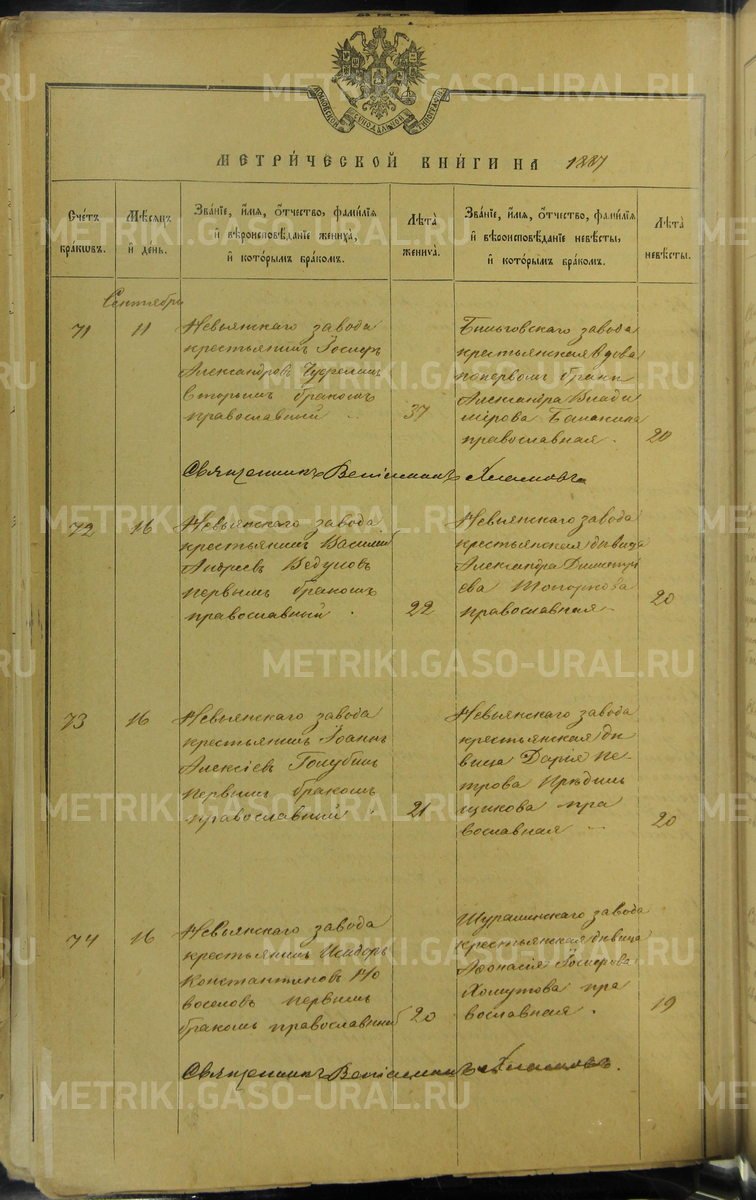 МОСКОВСКОЙ СѴНОДАЛЬНОЙ ТИПОГРАФІИ
МЕТРИ́ЧЕСКОЙ КНИ́ГИ НА 1887
Счётъ бра́кѡвъ.
Мѣ́сяцъ и҆ де́нь.
Зва́нїе, и҆́мя, ѻ҆́тчество, фами́лїя и҆ вѣроисповѣ́данїе жениха̀, и҆ кото́рымъ бра́комъ.
Лѣта̀ жениха̀.
Зва́нїе, и҆́мя, ѻ҆́тчество, фами́лїя и҆ вѣроисповѣ́данїе невѣ́сты, и҆ кото́рымъ бра́комъ.
Лѣта̀ невѣ́сты.
Сентябрь
71
11
Невьянскаго завода
крестьянинъ Іосифъ
Александровъ
вторымъ бракомъ
православный
37
Быньговскаго завода
крестьянская вдова
по первомъ бракѣ
Александра Влади
мірова
православная.
20
Священникъ Веніаминъ
72
16
Невьянскаго завода
крестьянинъ Василій
Андреевъ Ведуновъ
первымъ бракомъ
православный.
22
Невьянскаго завода
крестьянская дѣвица
Александра Димитрі
ева Топоркова
православная
20
73
16
Невьянскаго завода
крестьянинъ Іоаннъ
Алексіевъ Голубинъ
первымъ бракомъ
православный
21
Невьянскаго завода
крестьянская дѣ
вица Дарія Пе-
трова
щикова пра
вославная
20
74
16
Невьянскаго завода
крестьянинъ Исидоръ
Константиновъ Но
воселовъ первымъ
бракомъ православный
20
Шуралинскаго завода
крестьянская дѣвица
Аѳонасія Іосифова
Хомутова пра
вославная.
19
Священникъ Веніаминъ
METRIKI.GASO-URAL.RU